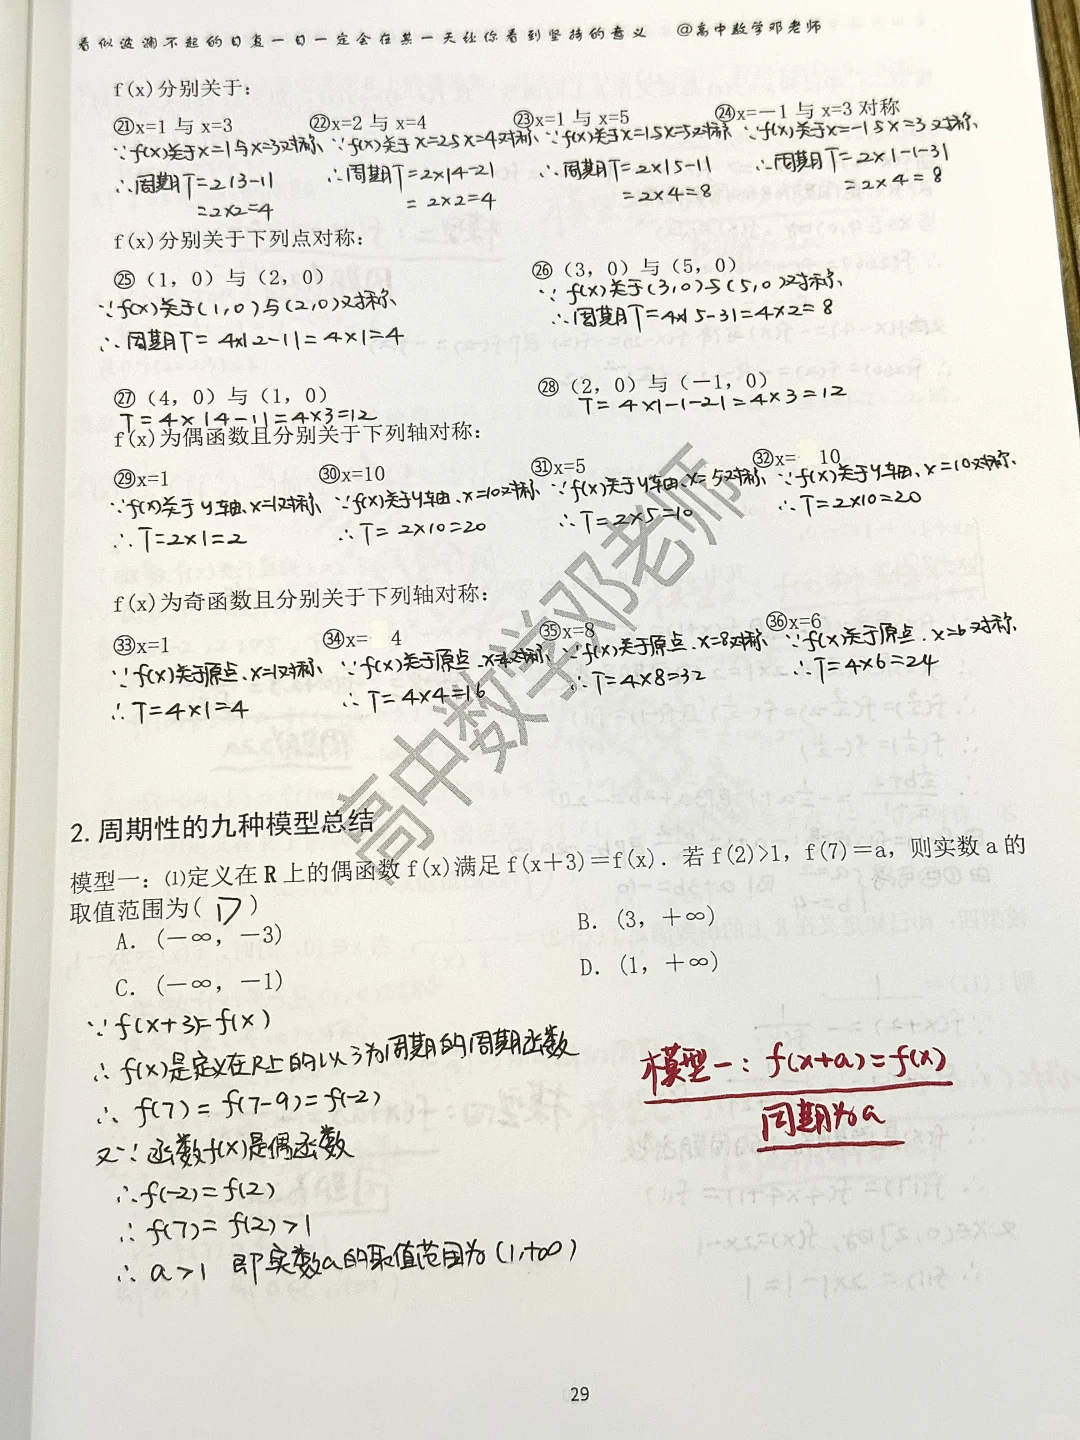 看似波澜不起的日复一日一定会在某一天让你看到坚持的意义 @高中数学邓老师
f(x)分别关于:
㉑x=1 与 x=3 ㉒x=2 与 x=4 ㉓x=1 与 x=5 ㉔x=－1 与 x=3 对称
∵f(x)关于x=1与x=3对称 ∵f(x)关于x=2与x=4对称 ∵f(x)关于x=1与x=5对称 ∵f(x)关于x=-1与x=3对称
∴周期T=2|3-1| ∴周期T=2×|4-2| ∴周期T=2×|5-1| ∴周期T=2×|-1-3|
=2×2=4 =2×2=4 =2×4=8 =2×4=8
f(x)分别关于下列点对称:
㉕（1，0）与（2，0） ㉖（3，0）与（5，0）
∵f(x)关于(1,0)与(2,0)对称 ∵f(x)关于(3,0)与(5,0)对称
∴周期T=4×|2-1|=4×1=4 ∴周期T=4×|5-3|=4×2=8
㉗（4，0）与（1，0） ㉘（2，0）与（－1，0）
T=4×|4-1|=4×3=12 T=4×|-1-2|=4×3=12
f(x)为偶函数且分别关于下列轴对称:
㉙x=1 ㉚x=10 ㉛x=5 ㉜x= 10
∵f(x)关于y轴、x=1对称 ∵f(x)关于y轴、x=10对称 ∵f(x)关于y轴、x=5对称 ∵f(x)关于y轴、x=10对称
∴T=2×1=2 ∴T=2×10=20 ∴T=2×5=10 ∴T=2×10=20
f(x)为奇函数且分别关于下列轴对称:
㉝x=1 ㉞x= 4 ㉟x=8 ㊱x=6
∵f(x)关于原点、x=1对称 ∵f(x)关于原点、x=4对称 ∵f(x)关于原点、x=8对称 ∵f(x)关于原点、x=6对称
∴T=4×1=4 ∴T=4×4=16 ∴T=4×8=32 ∴T=4×6=24
高中数学邓老师
2.周期性的九种模型总结
模型一：⑴定义在 R 上的偶函数 f(x)满足 f(x＋3)＝f(x)．若 f(2)>1，f(7)＝a，则实数 a 的
取值范围为( D )
A．(－∞，－3) B．(3，＋∞)
C．(－∞，－1) D．(1，＋∞)
∵f(x+3)=f(x)
∴f(x)是定义在R上的以3为周期的周期函数
∴f(7)=f(7-9)=f(-2)
又∵函数f(x)是偶函数
∴f(-2)=f(2)
∴f(7)=f(2)>1
∴a>1 即实数a的取值范围为(1,+∞)
模型一：f(x+a)=f(x)
周期为a
29